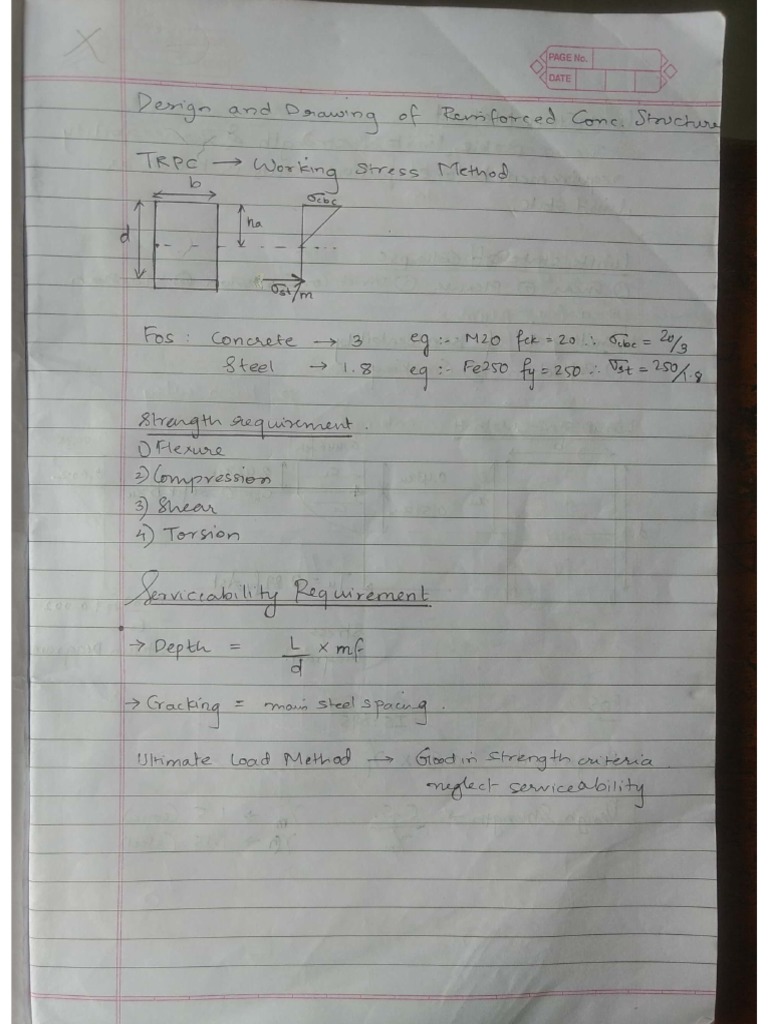 X
PAGE No.
DATE
Design and Drawing of Reinforced Conc. Structure
TRPC → Working Stress Method
b
σcbc
d
na
σst/m
Fos : Concrete → 3 eg :- M20 fck = 20 ∴ σcbc = 20/3
Steel → 1.8 eg :- Fe250 fy = 250 ∴ σst = 250/1.8
Strength requirement.
1) Flexure
2) Compression
3) Shear
4) Torsion
Serviceability Requirement.
→ Depth = L/d × mf
→ Cracking = main steel spacing.
Ultimate Load Method → Good in strength criteria
neglect serviceability